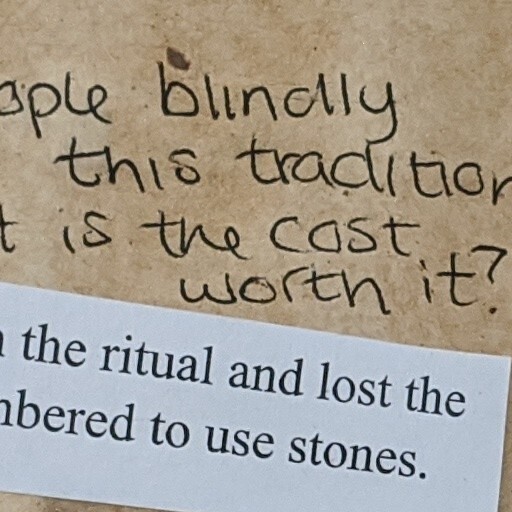 ople blindly
this tradition
t is the cost
worth it?
the ritual and lost the
mbered to use stones.